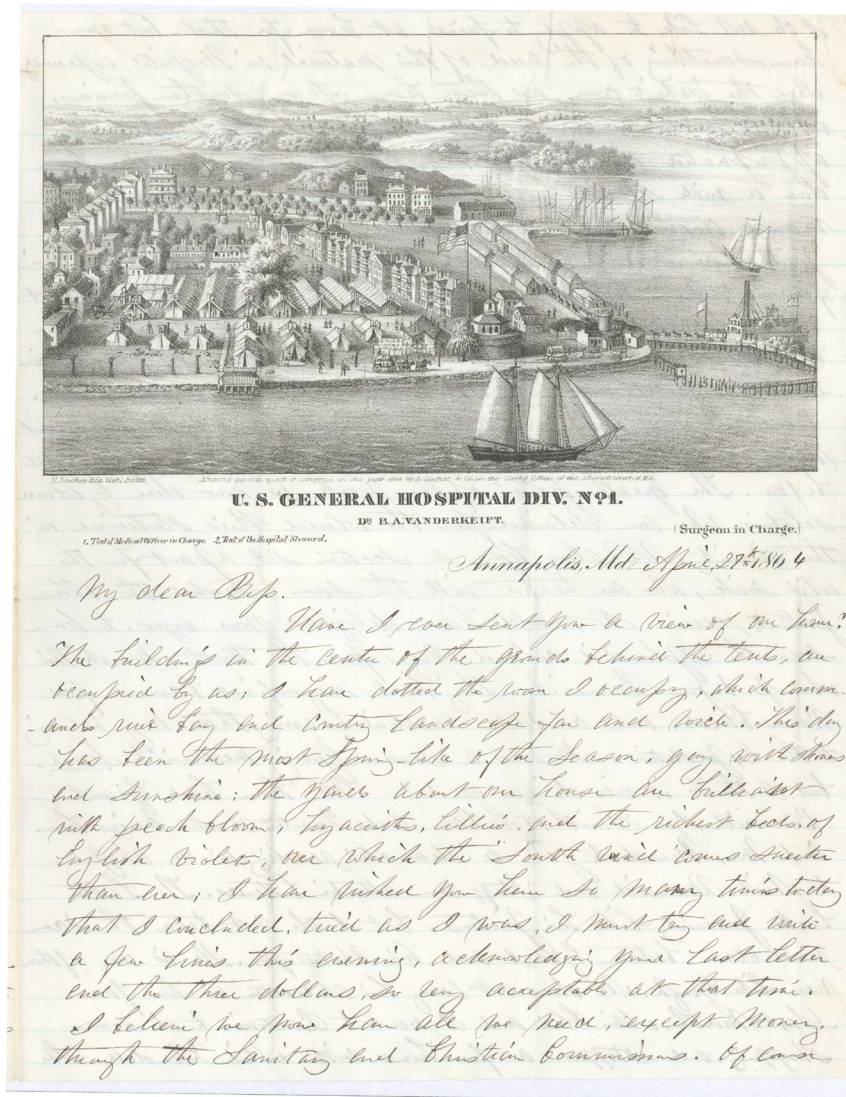 E. Sachse & Co. Lith. Balto.
Entered accord. to act of Congress in the year 1864 by E. Sachse & Co. in the Clerk's Office of the District Court of Md.
U. S. GENERAL HOSPITAL DIV. No. 1.
Dr. B. A. VANDERKEIFT.
(Surgeon in Charge.)
1. Tent of Medical Officer in Charge. 2. Tent of the Hospital Steward.
Annapolis, Md. April, 27th 1864
My dear Bess.
Have I ever sent you a view of our home?
The buildings in the centre of the grounds behind the tents, are
occupied by us; I have dotted the room I occupy, which comm-
-ands river bay and country landscape far and wide. This day
has been the most Spring-like of the Season, gay with showers
and sunshine; the yards about our house are brilliant
with peach bloom, hyacinths, lillies, and the richest beds of
English violets, over which the "South wind" comes sweeter
than ever; I have wished you here so many times today
that I concluded, tired as I was, I must try and write
a few lines this evening, acknowledging your last letter
and the three dollars, so very acceptable at that time.
I believe we now have all we need, except money,
through the Sanitary and Christian Commissions. Of course